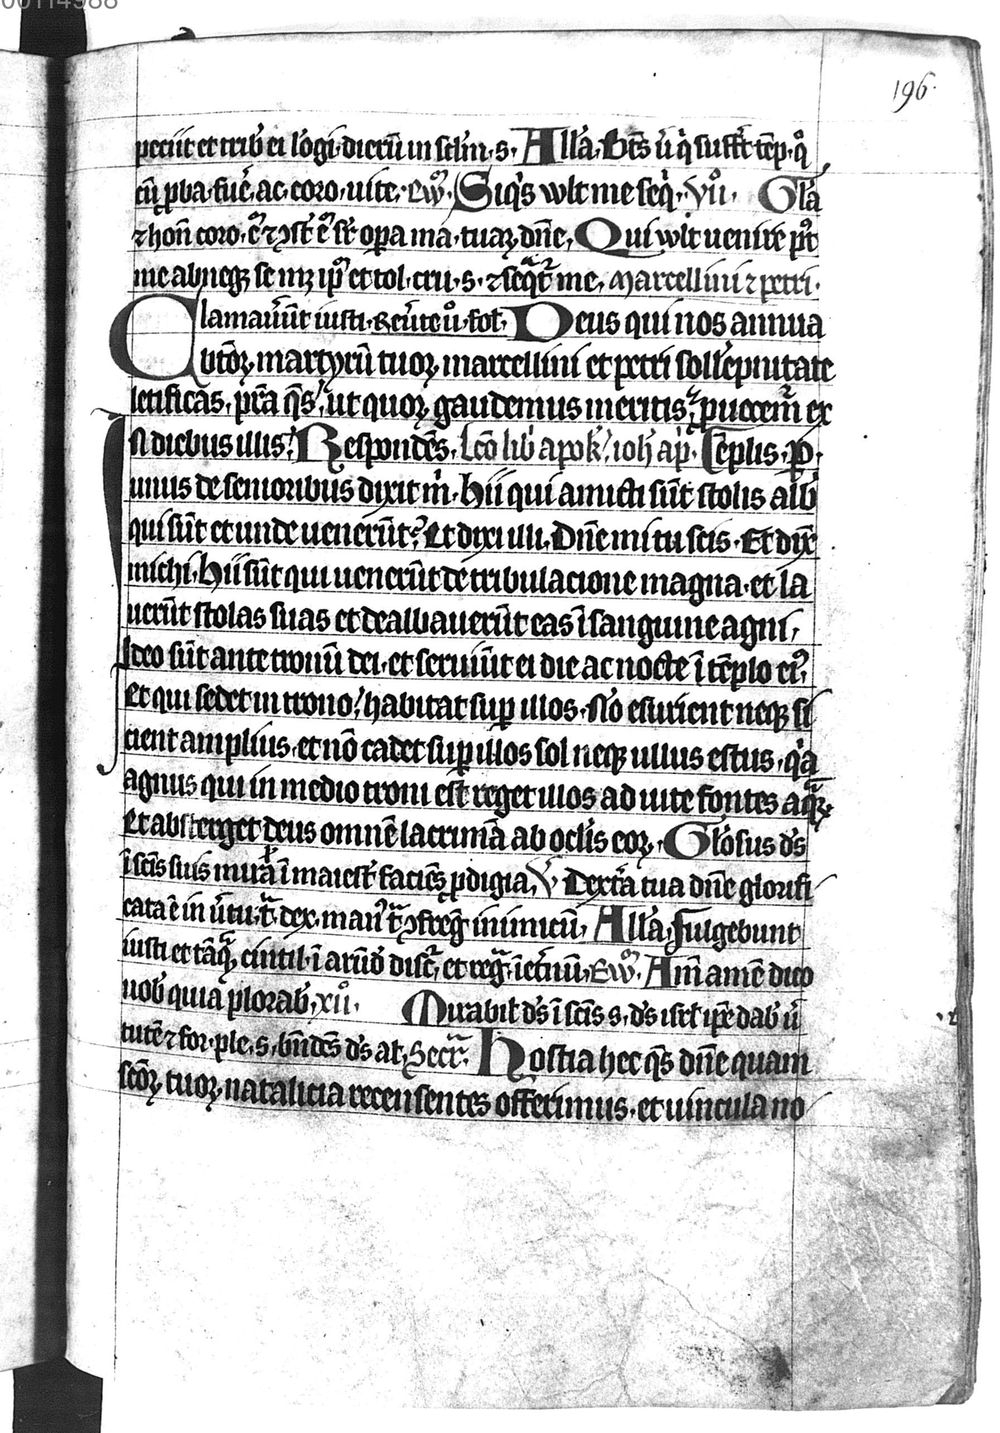 196.
peciit et trib̾ ei lōgi. dierū in sclm̄. s. Allā. Bt̄s ū q̇ suffc̄t tēp. q̊
cū ꝑba. fuē. ac. coro. uite. Ew̄. Siq̇s wlt me seq̇. vn̊. Glā
⁊ hon̄ coro. ē. ⁊ ꝯst̄ ē. sr̄ oꝑa ma. tuaꝝ. dn̄e. Qui wlt uenire pt̄
me abneꝫ se mꝫ ip̄ et tol. cru. s. ⁊ seq̄t̄ me. Marcellini ⁊ petri.
Clamaūūt iusti. Deus qui nos annua
btōꝝ martyrū tuoꝝ marcellini et petri soll̄epnitate
letificas. p̄ra q̄s. ut quoꝝ gaudemus meritis. ꝓuocem̄ ex
In diebus illis. Respondēs. Lc̄o lib̾ apok̾. ioh̾ ap̄. 
unus de senioribus dixit m̄. Hii qui amicti sūt stolis alb̾
qui sūt et unde uenerūt. Et dixi illi. Dn̄e mi tu scis. Et dix̄
michi. Hii sūt qui uenerūt de tribulacione magna. et la
uerūt stolas suas et dealbauerūt eas ī sanguine agni.
Ideo sūt ante tronū dei. et seruiūt ei die ac nocte ī tēplo ei᾽.
Et qui sedet in trono. habitat suꝑ illos. Nō esurient neqꝫ si
cient amplius. et nō cadet suꝑ illos sol neqꝫ ullus estus. q̇a
agnus qui in medio troni est reget illos ad uite fontes aq̄ꝝ.
Et absterget deus omnē lacrimā ab ocl̄is eoꝝ. Gl̄osus ds̄
ī sc̄is suis mirā ī maiest̄ faciēs ꝓdigia. V̾ Dext̄a tua dn̄e glorifi
cata ē in ūtu. t̄. dex. man᾽ t̄ ꝯfreḡ inimicū. Allā. Fulgebunt
iusti et tāq̄ cintil. ī arūd̾ disc̄. et reḡ. ī et̄nū. Ew̄. Am̄ amē dico
uob̾ quia plorab̾. xii̊. Mirabil̄ ds̄ ī sc̄is s. ds̄ isrl̄ ip̄e dab̾ ū
tutē ⁊ for. ple. s. bn̄dcs̄ ds̄ al̄. Secr̄. Hostia hec q̄s dn̄e quam
sc̄oꝝ tuoꝝ natalicia recensentes offerimus. et uincula no